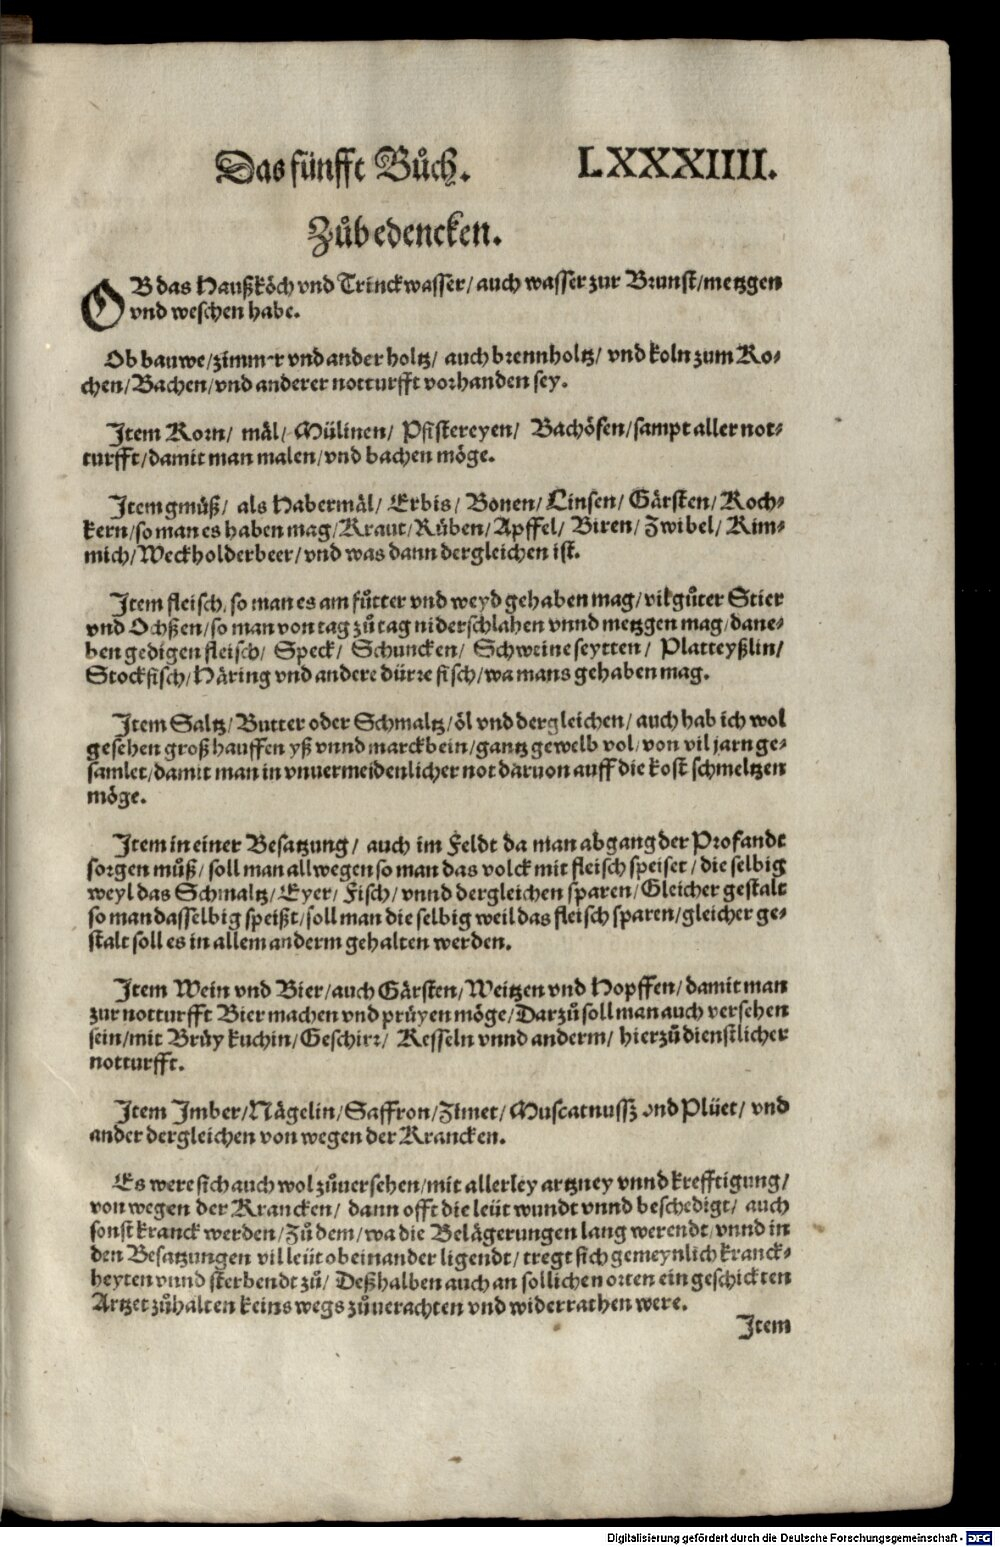 Das fünfft Bůch. LXXXIIII.
Zůbedencken.
OB das Haußköch vnd Trinckwasser/ auch wasser zur Brunst/metzgen
vnd weschen habe.
Ob bauwe/zimmer vnd ander holtz/ auch brennholtz/ vnd koln zum Ko-
chen/Bachen/vnd anderer notturfft vorhanden sey.
Item Korn/ mäl/ Mülinen/ Pfistereyen/ Bachöfen/sampt aller not-
turfft/damit man malen/vnd bachen möge.
Item gmüß/ als Habermäl/ Erbis/ Bonen/ Linsen/ Gärsten/ Koch-
kern/so man es haben mag/Kraut/Rüben/Apffel/ Biren/ Zwibel/ Kim-
mich/Weckholderbeer/vnd was dann dergleichen ist.
Item fleisch, so man es am fůtter vnd weyd gehaben mag/vil gůter Stier
vnd Ochßen/so man von tag zů tag niderschlahen vnnd metzgen mag/dane-
ben gedigen fleisch/ Speck/ Schuncken/ Schweine seytten/ Platteyßlin/
Stockfisch/Häring vnd andere dürre fisch/wa mans gehaben mag.
Item Saltz/Butter oder Schmaltz/öl vnd dergleichen/ auch hab ich wol
gesehen groß hauffen yß vnnd marckbein/gantz gewelb vol/von vil jarn ge-
samlet/damit man in vnuermeidenlicher not daruon auff die kost schmeltzen
möge.
Item in einer Besatzung/ auch im Feldt da man abgang der Profandt
sorgen můß/soll man allwegen so man das volck mit fleisch speiset/die selbig
weyl das Schmaltz/Eyer/ Fisch/ vnnd dergleichen sparen/Gleicher gestalt
so man dasselbig speißt/soll man die selbig weil das fleisch sparen/gleicher ge-
stalt soll es in allem anderm gehalten werden.
Item Wein vnd Bier/auch Gärsten/Weitzen vnd Hopffen/damit man
zur notturfft Bier machen vnd prüyen möge/Darzů soll man auch versehen
sein/mit Brüy kuchin/Geschirr/ Kesseln vnnd anderm/ hierzů dienstlicher
notturfft.
Item Imber/Nägelin/Saffron/Zimet/Muscatnussz vnd Plüet/ vnd
ander dergleichen von wegen der Krancken.
Es were sich auch wol zůuersehen/mit allerley artzney vnnd krefftigung/
von wegen der Krancken/ dann offt die leüt wundt vnnd beschedigt/ auch
sonst kranck werden/Zů dem/wa die Belägerungen lang werendt/vnnd in
den Besatzungen vil leüt obeinander ligendt/tregt sich gemeynlich kranck-
heyten vnnd sterbendt zů/ Deßhalben auch an sollichen orten ein geschickten
Artzet zůhalten keins wegs zůuerachten vnd widerrathen were.
Item
Digitalisierung gefördert durch die Deutsche Forschungsgemeinschaft - DFG